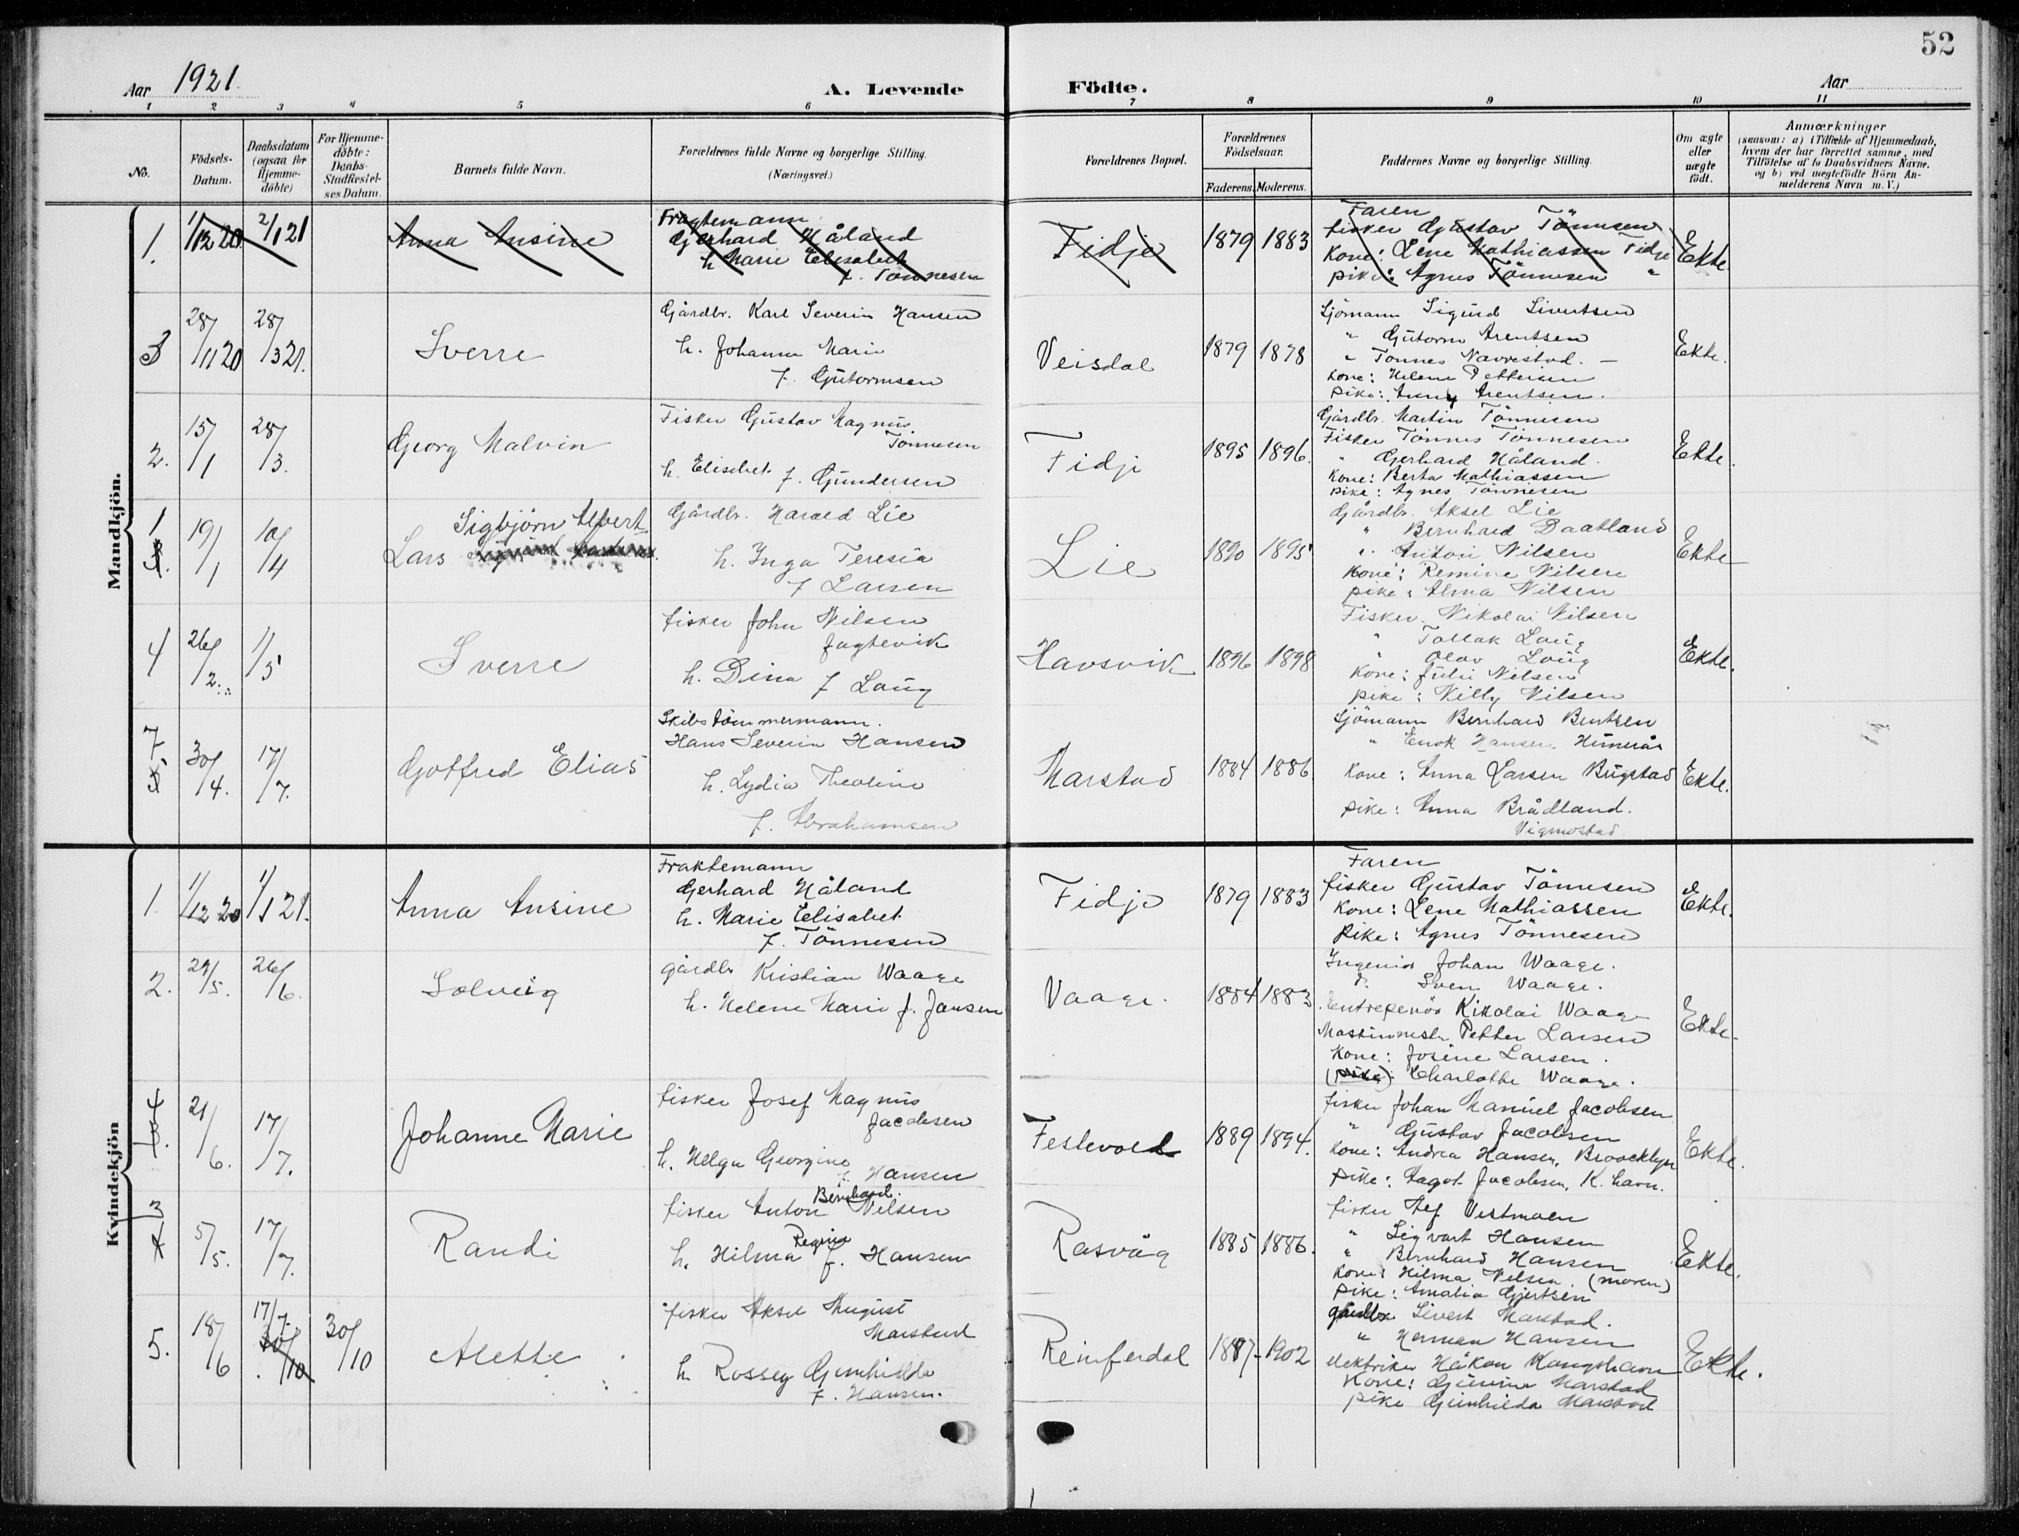 52
Aar 1921. A. Levende Födte. Aar
1 2 3 4 5 6 7 8 9 10 11
No.
Födsels-Datum.
Daabsdatum (ogsaa for Hjemme-döbte)
For Hjemme-döbte: Daabs-Stadfæstel-ses Datum.
Barnets fulde Navn.
Forældrenes fulde Navne og borgerlige Stilling.
(Næringsvei.)
Forældrenes Bopæl.
Forældrenes Födselsaar.
Faderens. Moderens.
Faddernes Navne og borgerlige Stilling.
Om ægte eller uægte födt.
Anmærkninger
(saasom: a) i Tilfælde af Hjemmedaab, hvem der har forrettet samme, med Tilföielse af to Daabsvidners Navne. og b) ved uægtefödte Börn An-melderens Navn m. V.)
Mandkjön.
1. 1/12 20 2/1 21 Anna Ansine
Fragtemann
Gerhard Håland
h. Marie Elisabet
f. Tönnesen
Fidje 1879 1883
Faren
fisker Gustav Tönnesen
Kone: Lene Mathiassen Fidje
pike: Agnes Tönnesen "
Ekte.
28/11 20 28/3 21. Sverre
Gårdbr. Karl Severin Hansen
h. Johanne Marie
f. Gutormsen
Veisdal 1879 1878
Sjömann Sigurd Sivertsen
" Gutorm Arentsen
" Tonnes Navrestad. —
Kone: Helene Pettersen
pike: Anny Arentsen.
Ekte.
2. 15/1 28/3. Georg Malvin
Fisker Gustav Magnus
Tönnesen
h. Elisebet f. Gundersen
Fidje 1895 1896.
Gårdbr. Martin Tönnesen
Fisker Tönnes Tönnesen
" Gerhard Håland.
Kone: Berta Mathiassen
pike: Agnes Tönnesen
Ekte.
1 3. 19/1 10/4 Lars Sigbjörn Alfbert
Gårdbr. Harald Lie
h. Inga Teresia
f Larsen
Lie 1890 1895
Gårdbr. Aksel Lie
" Bernhard Daatland
" Anton Nilsen
Kone: Remine Nilsen
pike: Alma Nilsen
Ekte
4 26/2. 1/5 Sverre
fisker John Nilsen
Jagtevik
h. Dina f Laug
Havsvik 1896 1898
Fisker Nikolai Nilsen
" Tollak Laug
" Olav Laug
Kone: Julie Nilsen
pike: Nilly Nilsen
Ekte.
7 5 30/4. 17/7. Gotfred Elias
Skibstömmermann.
Hans Severin Hansen
h. Lydia Theoline
f. Abrahamsen
Marstad 1884 1886
Sjömann Bernhard Bentsen
" Enok Hansen Humerås
Kone: Anna Larsen Bugstad
pike: Anna Brådland.
Vigmostad
Ekte.
Kvindekjön
1. 1/12 20 1/1 21. Anna Ansine
Fraktemann
Gerhard Håland
h. Marie Elisabet
f. Tönnesen
Fidje 1879 1883
Faren
fisker Gustav Tönnesen
Kone: Lene Mathiassen
Pike: Agnes Tönnesen
Ekte.
2. 29/5. 26/6. Solveig
gårdbr Kristian Waage
h. Helene Marie f. Jansen
Vaage. 1884 1883
Ingeniör Johan Waage.
Sven Waage.
Entrepenör Nikolai Waage
Maskinmstr Petter Larsen
Kone: Josine Larsen.
(pike) Charlotte Waage.
Ekte.
4 3. 21/6. 17/7. Johanne Marie
fisker Josef Magnus
Jacobsen
h. Helga Georgine
f. Hansen
Festevold 1889 1894.
fisker Johan Manuel Jacobsen
" Gustav Jacobsen
Kone: Andrea Hansen, Broocklyn
Pike: Dagot Jacobsen, K. havn.
Ekte.
3 4 5/5. 17/7. Randi
fisker Anton Bernhard. Nilsen
h. Hilma Regine f. Hansen
Rasvåg 1885 1886.
fisker Alf Vestmoen
" Sigvart Hansen
" Bernhard Hansen
Kone: Hilma Nilsen. (moren)
Pike: Amalia Gjertsen
Ekte.
5. 18/6 17/7. 30/10 30/10 Alette
fisker Aksel August
Marstad
h. Rossey Gunhilde
f. Hansen.
Reinferdal 1887-1902
gårdbr Sivert Marstad.
" Herman Hansen
elektriker Håkon Kongshavn
Kone: Gurine Marstad
pike Gunhilda Marstad
Ekte.